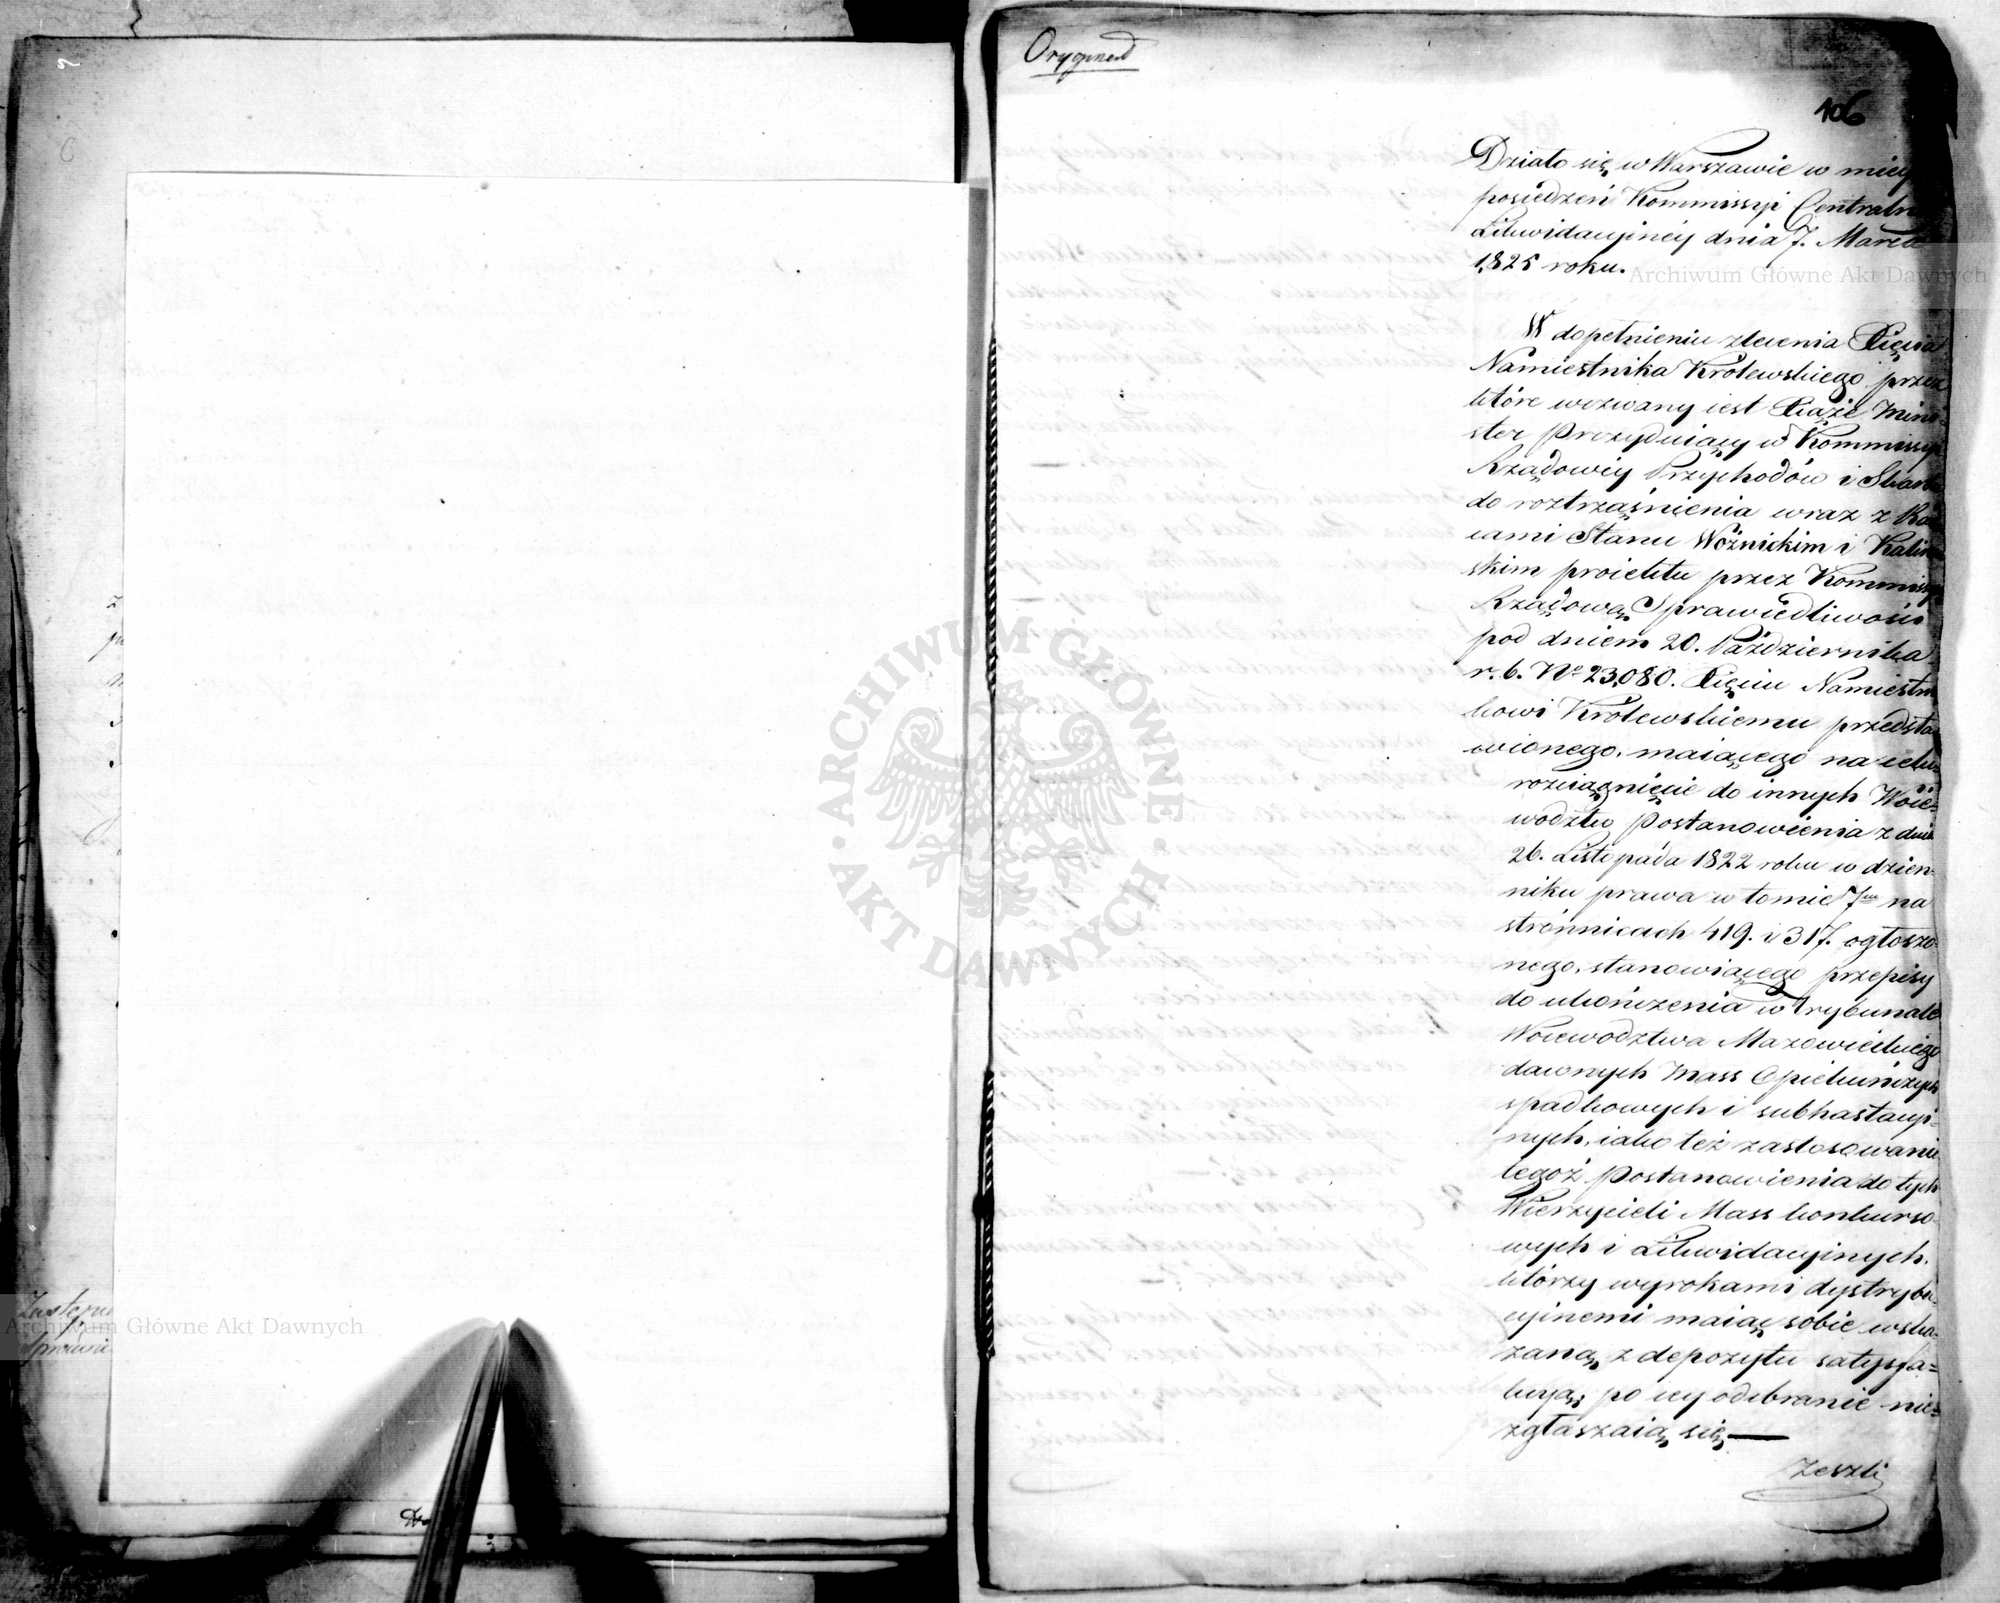 Oryginał
106
Działo się w Warszawie w miey
posiedzeń Kommissyi Centraln
Likwidacyiney dnia 7. Marca
1825 roku.
W dopełnieniu zlecenia Xięcia
Namiestnika Królewskiego, przez
które wezwany iest Xiąże Mini-
ster Prezyduiący w Kommissyi
Rządowey Przychodów i Skarbu
do roztrząśnienia wraz z Rad
cami Stanu Woźnickim i Kalin
skim proiektu przez Kommissyę
Rządową Sprawiedliwości
pod dniem 20. Października
r. b. No 23,080. Xięciu Namiestni
kowi Królewskiemu przedsta
wionego, maiącego na celu
rozciągnięcie do innych Woie-
wództw Postanowienia z dnia
26. Listopada 1822 roku w dzien-
niku prawa w tomie 7m na
strónnicach 419. i 317. ogłoszo-
nego, stanowiącego przepisy
do ukończenia w Trybunale
Woiewodztwa Mazowieckiego
dawnych Mass Opiekuńczych
spadkowych i subhastacyi-
nych, iako też zastosowania
tegoż Postanowienia do tych
Wierzycieli Mass konkurso-
wych i Likwidacyinych,
którzy wyrokami dystrybu-
cyinemi maiąc sobie wska-
zaną z depozytu satysfa-
kcyą, po iey odebranie nie-
zgłaszaią się —
Zastępu
Sprawie
Archiwum Główne Akt Dawnych
Archiwum Główne Akt Dawnych
ARCHIWUM GŁÓWNE · AKT DAWNYCH ·